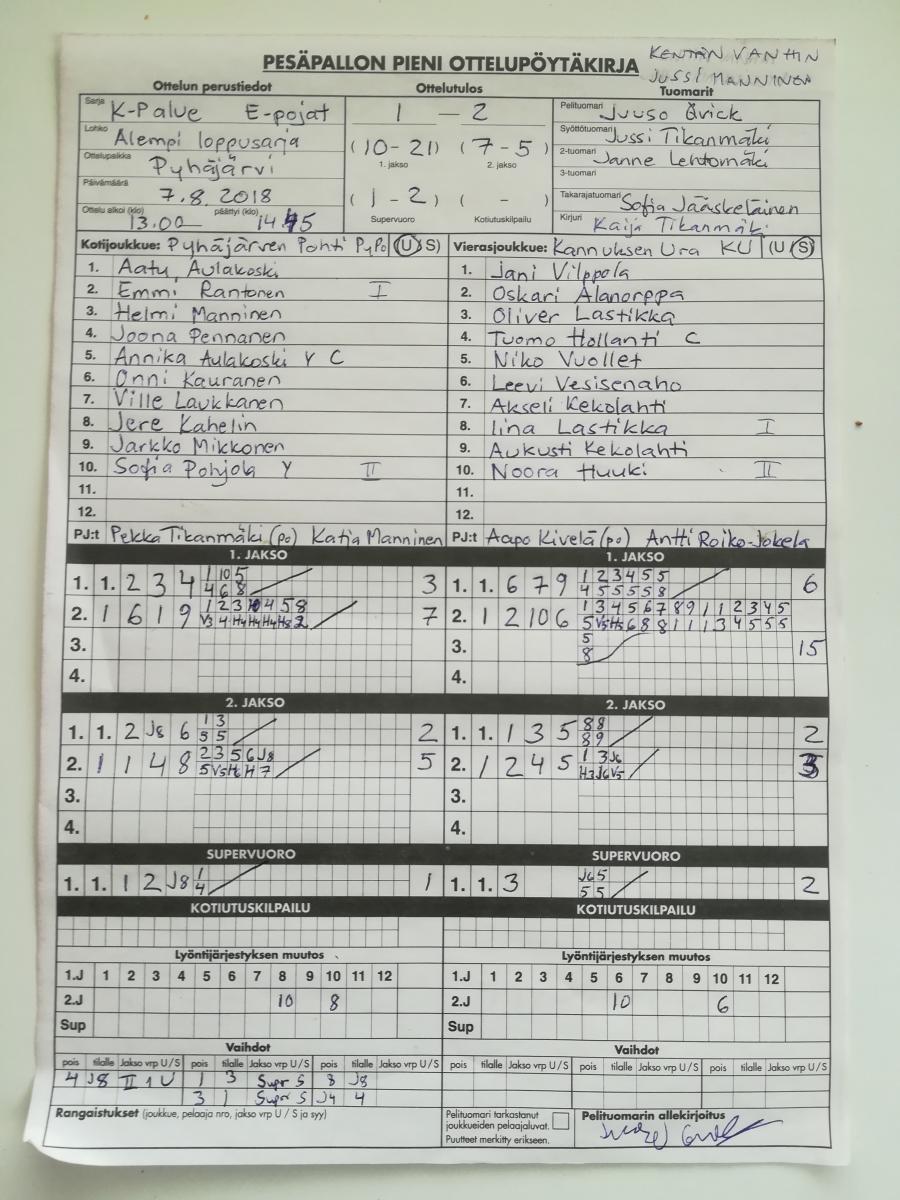 PESÄPALLON PIENI OTTELUPÖYTÄKIRJA
KENTÄN VANHIN
JUSSI MANNINEN
Ottelun perustiedot Ottelutulos Tuomarit
Sarja K-Palue E-pojat
Lohko Alempi loppusarja
Ottelupaikka Pyhäjärvi
Päivämäärä 7.8.2018
Ottelu alkoi (klo) 13.00 päättyi (klo)
1 – 2
(10-21) (7-5)
1. jakso 2. jakso
(1-2) ( - )
Supervuoro Kotiutuskilpailu
Pelituomari Juuso Qvick
Syöttötuomari Jussi Tikanmäki
2-tuomari Janne Lehtomäki
3-tuomari
Takarajatuomari Sofia Jääskeläinen
Kirjuri Kaija Tikanmäki
Kotijoukkue: Pyhäjärven Pohti PyPo (U S)
1. Aatu Aulakoski
2. Emmi Rantonen I
3. Helmi Manninen
4. Joona Pennanen
5. Annika Aulakoski Y C
6. Onni Kauranen
7. Ville Laukkanen
8. Jere Kahelin
9. Jarkko Mikkonen
10. Sofia Pohjola Y II
11.
12.
PJ:t Pekka Tikanmäki (po) Katja Manninen
Vierasjoukkue: Kannuksen Ura KU (U S)
1. Jani Vilppola
2. Oskari Alanorppa
3. Oliver Lastikka
4. Tuomo Hollanti C
5. Niko Vuollet
6. Leevi Vesisenaho
7. Akseli Kekolahti
8. Iina Lastikka I
9. Aukusti Kekolahti
10. Noora Huuki II
11.
12.
PJ:t Aapo Kivelä (po) Antti Roiko-Jokela
1. JAKSO 1. JAKSO
1. 1. 2 3 4 1 10 5 3
4 6 8
2. 1 6 1 9 7
3.
4.
1. 1. 6 7 9 1 2 3 4 5 5 6
4 5 5 5 5 8
2. 1 2 10 6 1 3 4 5 6 7 8 9 1 1 2 3 4 5
5 V5 H5 6 8 8 1 1 1 3 4 5 5 5
3. 5 15
8
4.
2. JAKSO 2. JAKSO
1. 1. 2 J8 6 1 3 2
5 5
2. 1 1 4 8 2 3 5 6 J8 5
5 V5 H6 H 7
3.
4.
1. 1. 1 3 5 8 8 2
8 9
2. 1 2 4 5 1 3 J6
H3 J6 V5
3.
4.
SUPERVUORO SUPERVUORO
1. 1. 1 2 J8 1 1
4
1. 1. 3 J6 5 2
5 5
KOTIUTUSKILPAILU KOTIUTUSKILPAILU
Lyöntijärjestyksen muutos Lyöntijärjestyksen muutos
1.J 1 2 3 4 5 6 7 8 9 10 11 12 1.J 1 2 3 4 5 6 7 8 9 10 11 12
2.J 10 8 2.J 10 6
Sup Sup
Vaihdot Vaihdot
pois tilalle Jakso vrp U/S pois tilalle Jakso vrp U/S pois tilalle Jakso vrp U/S pois tilalle Jakso vrp U/S pois tilalle Jakso vrp U/S pois tilalle Jakso vrp U/S
4 J8 II 1 U 1 3 Supr S 8 J8
3 1 Supr S J4 4
Rangaistukset (joukkue, pelaaja nro, jakso vrp U / S ja syy)
Pelituomari tarkastanut
joukkueiden pelaajaluvat.
Puutteet merkitty erikseen.
Pelituomarin allekirjoitus